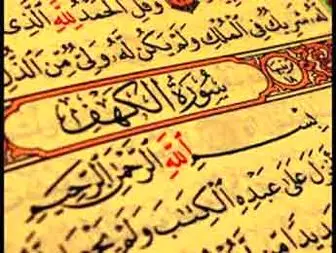 وقل الحمد لله الذى
له شريك فى الملك ولم يكن له ولى من الذل
سورة الكهف
بسم الله الرحمن الرحيم
على عبده الكتب ولم